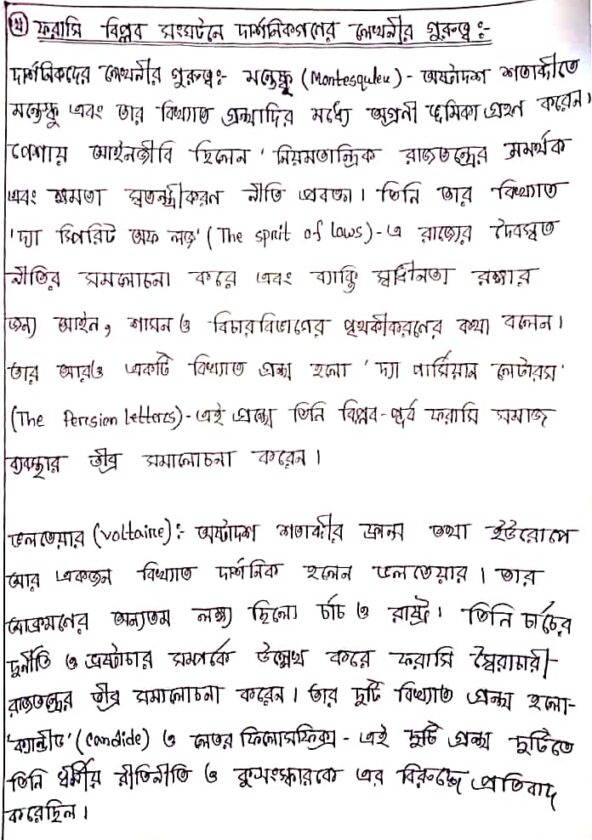 (খ) ফরাসি বিপ্লব সংঘটনে দার্শনিকগণের লেখনীর গুরুত্ব:-
দার্শনিকদের লেখনীর গুরুত্ব:- মন্তেস্কু (Montesquieu) - অষ্টাদশ শতাব্দীতে
মন্তেস্কু এবং তার বিখ্যাত গ্রন্থাদির মধ্যে অগ্রনী ভূমিকা গ্রহণ করেন।
পেশায় আইনজীবি ছিলেন ' নিয়মতান্ত্রিক রাজতন্ত্রের সমর্থক
এবং ক্ষমতা স্বতন্ত্রীকরণ নীতি প্রবক্তা। তিনি তার বিখ্যাত
'দ্যা স্পিরিট অফ লজ' (The spirit of laws)-এ রাজ্যের দৈবস্বত
নীতির সমলোচনা করে এবং ব্যাক্তি স্বাধীনতা রক্ষার
জন্য আইন, শাসন ও বিচারবিভাগের পৃথকীকরণের কথা বলেন।
তার আরও একটি বিখ্যাত গ্রন্থ হলো 'দ্যা পার্সিয়ান লেটারস'
(The Persian Letters) - এই গ্রন্থে তিনি বিপ্লব-পূর্ব ফরাসি সমাজ
ব্যবস্থার তীব্র সমালোচনা করেন।
ভলতেয়ার (voltaire): অষ্টাদশ শতাব্দীর ফ্রান্স তথা ইউরোপে
আর একজন বিখ্যাত দার্শনিক হলেন ভলতেয়ার। তার
আক্রমণের অন্যতম লক্ষ্য ছিলো চার্চ ও রাষ্ট্র। তিনি চার্চের
দুর্নীতি ও ভ্রষ্টাচার সম্পর্কে উল্লেখ করে ফরাসি স্বৈরাচারী
রাজতন্ত্রের তীব্র সমালোচনা করেন। তার দুটি বিখ্যাত গ্রন্থ হলো-
'ক্যান্ডীড' (Candide) ও লেতর ফিলোসফিক্স - এই দুটি গ্রন্থ দুটিতে
তিনি ধর্মীয় রীতিনীতি ও কুসংস্কারকে এর বিরুদ্ধে প্রতিবাদ
করেছিল।